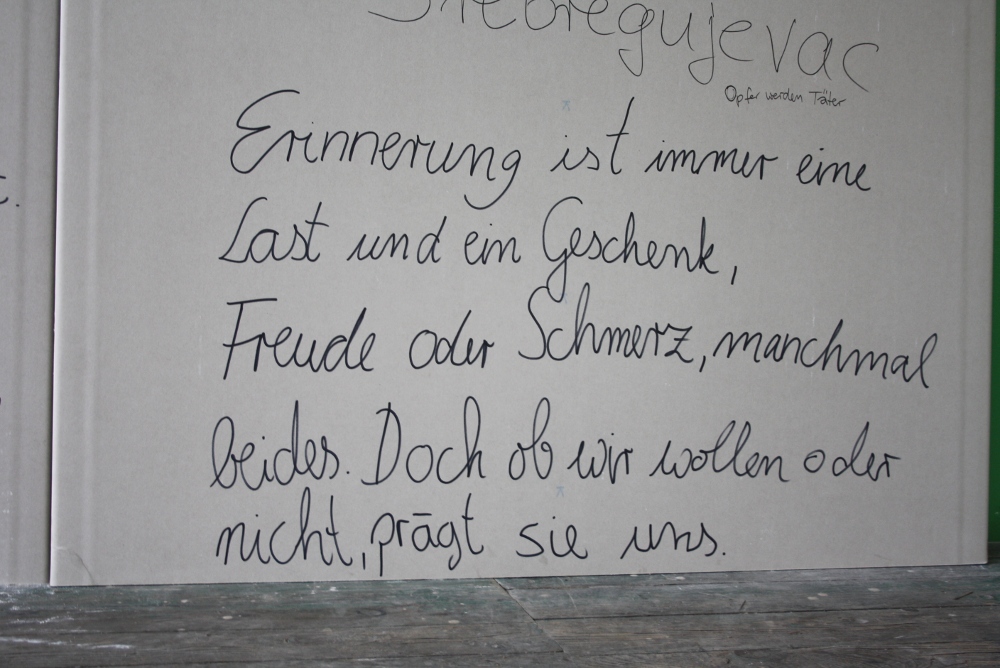 Opfer werden Täter
Erinnerung ist immer eine
Last und ein Geschenk,
Freude oder Schmerz, manchmal
beides. Doch ob wir wollen oder
nicht, prägt sie uns.